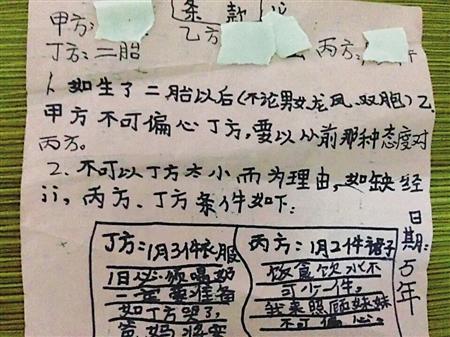 条款
甲方:
乙方
丙方:
丁方:二胎
1、如生了二胎以后(不论男女龙凤、双胞)乙
甲方不可偏心丁方,要以从前那种态度对
丙方。
2、不可以丁方太小而为理由,如缺经
济,丙方、丁方条件如下:
丁方:1月3件衣服
1日必须喝奶
一定要准备
如丁方哭了,
爸妈将要
丙方:1月2件裙子
饭食饮水不
可少一件。
我来照顾妹妹
不可偏心。
日期:5年